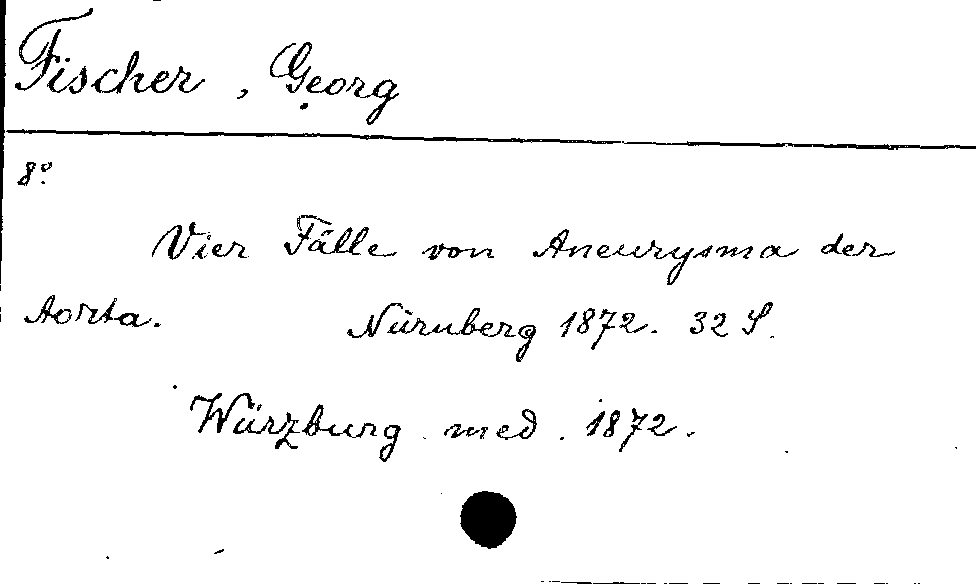 Fischer, Georg
8°.
Vier Fälle von Aneurysma der
Aorta. Nürnberg 1872. 32 S.
Würzburg. med. 1872.